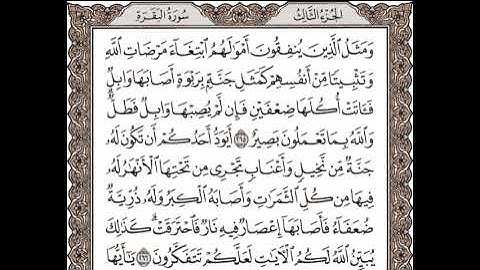 الجزء الثالث سورة البقرة
وَمَثَلُ ٱلَّذِينَ يُنفِقُونَ أَمْوَٰلَهُمُ ٱبْتِغَآءَ مَرْضَاتِ ٱللَّهِ
وَتَثْبِيتًا مِّنْ أَنفُسِهِمْ كَمَثَلِ جَنَّةٍۭ بِرَبْوَةٍ أَصَابَهَا وَابِلٌ
فَـَٔاتَتْ أُكُلَهَا ضِعْفَيْنِ فَإِن لَّمْ يُصِبْهَا وَابِلٌ فَطَلٌّ
وَٱللَّهُ بِمَا تَعْمَلُونَ بَصِيرٌ ٢٦٥ أَيَوَدُّ أَحَدُكُمْ أَن تَكُونَ لَهُۥ
جَنَّةٌ مِّن نَّخِيلٍ وَأَعْنَابٍ تَجْرِى مِن تَحْتِهَا ٱلْأَنْهَٰرُ لَهُۥ
فِيهَا مِن كُلِّ ٱلثَّمَرَٰتِ وَأَصَابَهُ ٱلْكِبَرُ وَلَهُۥ ذُرِّيَّةٌ
ضُعَفَآءُ فَأَصَابَهَآ إِعْصَارٌ فِيهِ نَارٌ فَٱحْتَرَقَتْ ۗ كَذَٰلِكَ
يُبَيِّنُ ٱللَّهُ لَكُمُ ٱلْـَٔايَٰتِ لَعَلَّكُمْ تَتَفَكَّرُونَ ٢٦٦ يَٰٓأَيُّهَا